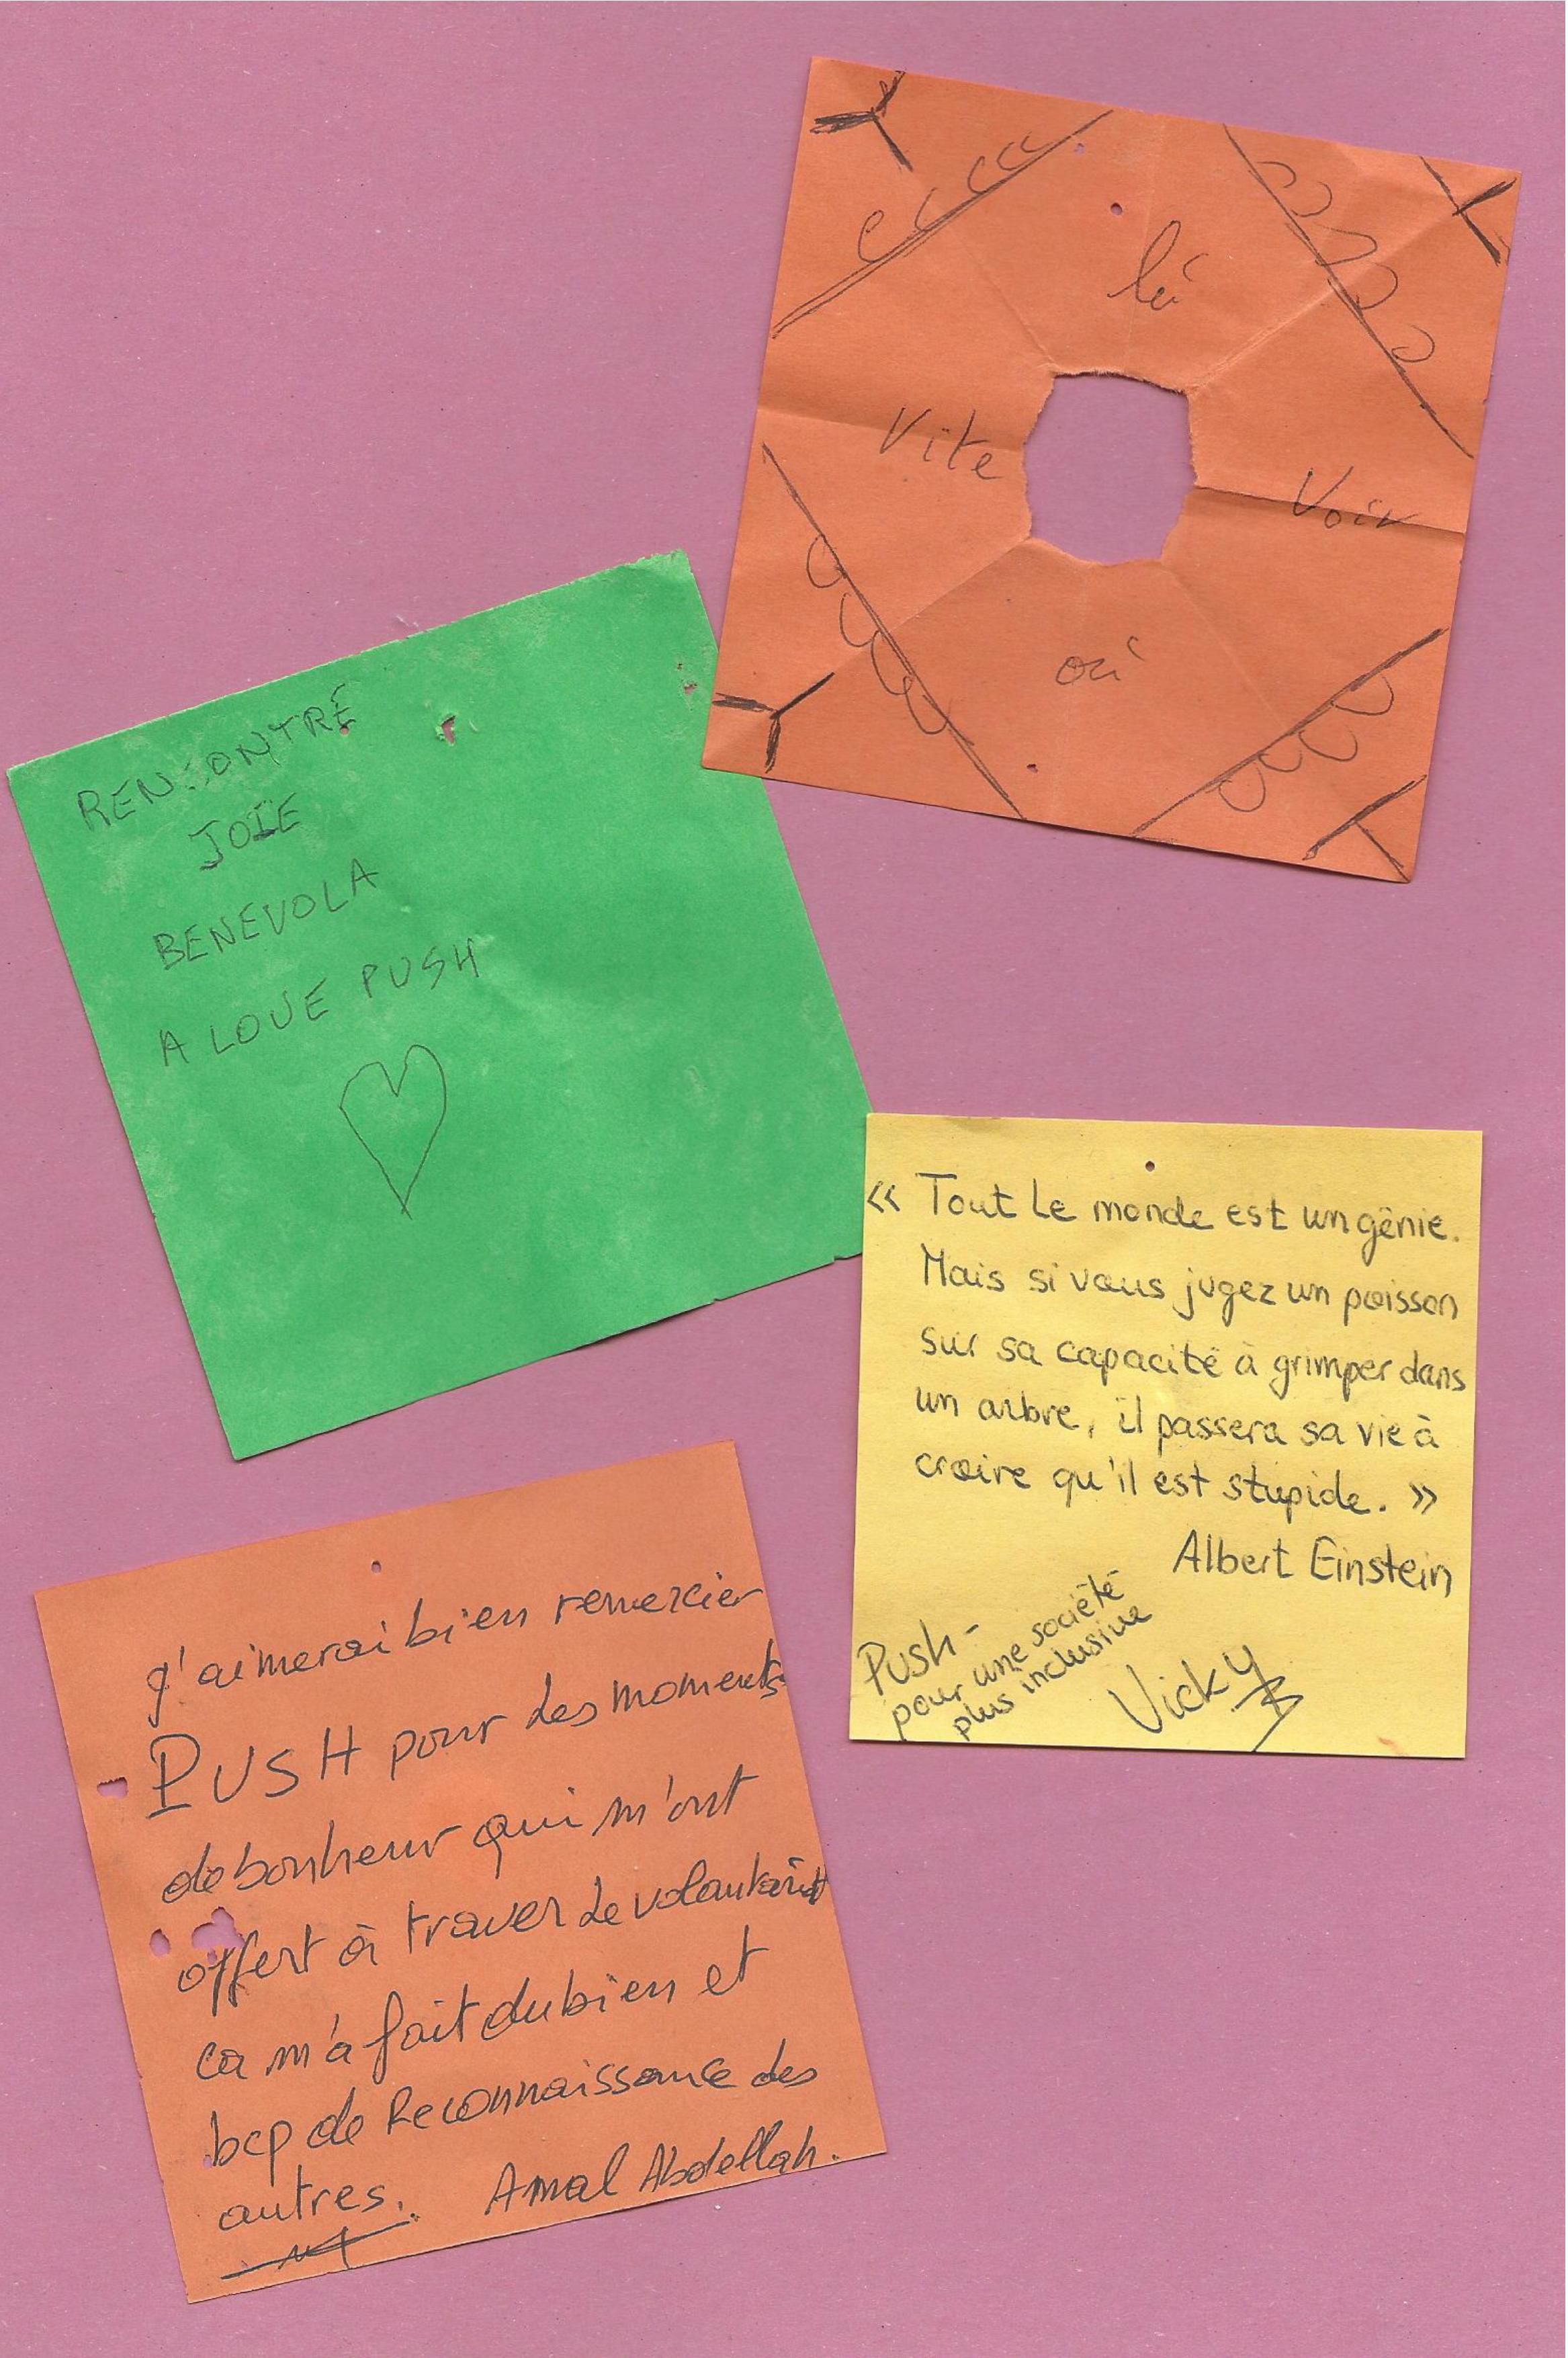 là
Vite
Voir
où
RENCONTRE
JOIE
BENEVOLA
A LOVE PUSH
« Tout le monde est un génie.
Mais si vous jugez un poisson
sur sa capacité à grimper dans
un arbre, il passera sa vie à
croire qu'il est stupide. »
Albert Einstein
Push -
pour une société
plus inclusive
Vicky
J'aimerai bien remercier
PUSH pour des moments
de bonheur qui m'ont
offert à traver le volantariat
ça m'a fait du bien et
bcp de Reconnaissance des
autres. Amal Abdellah.